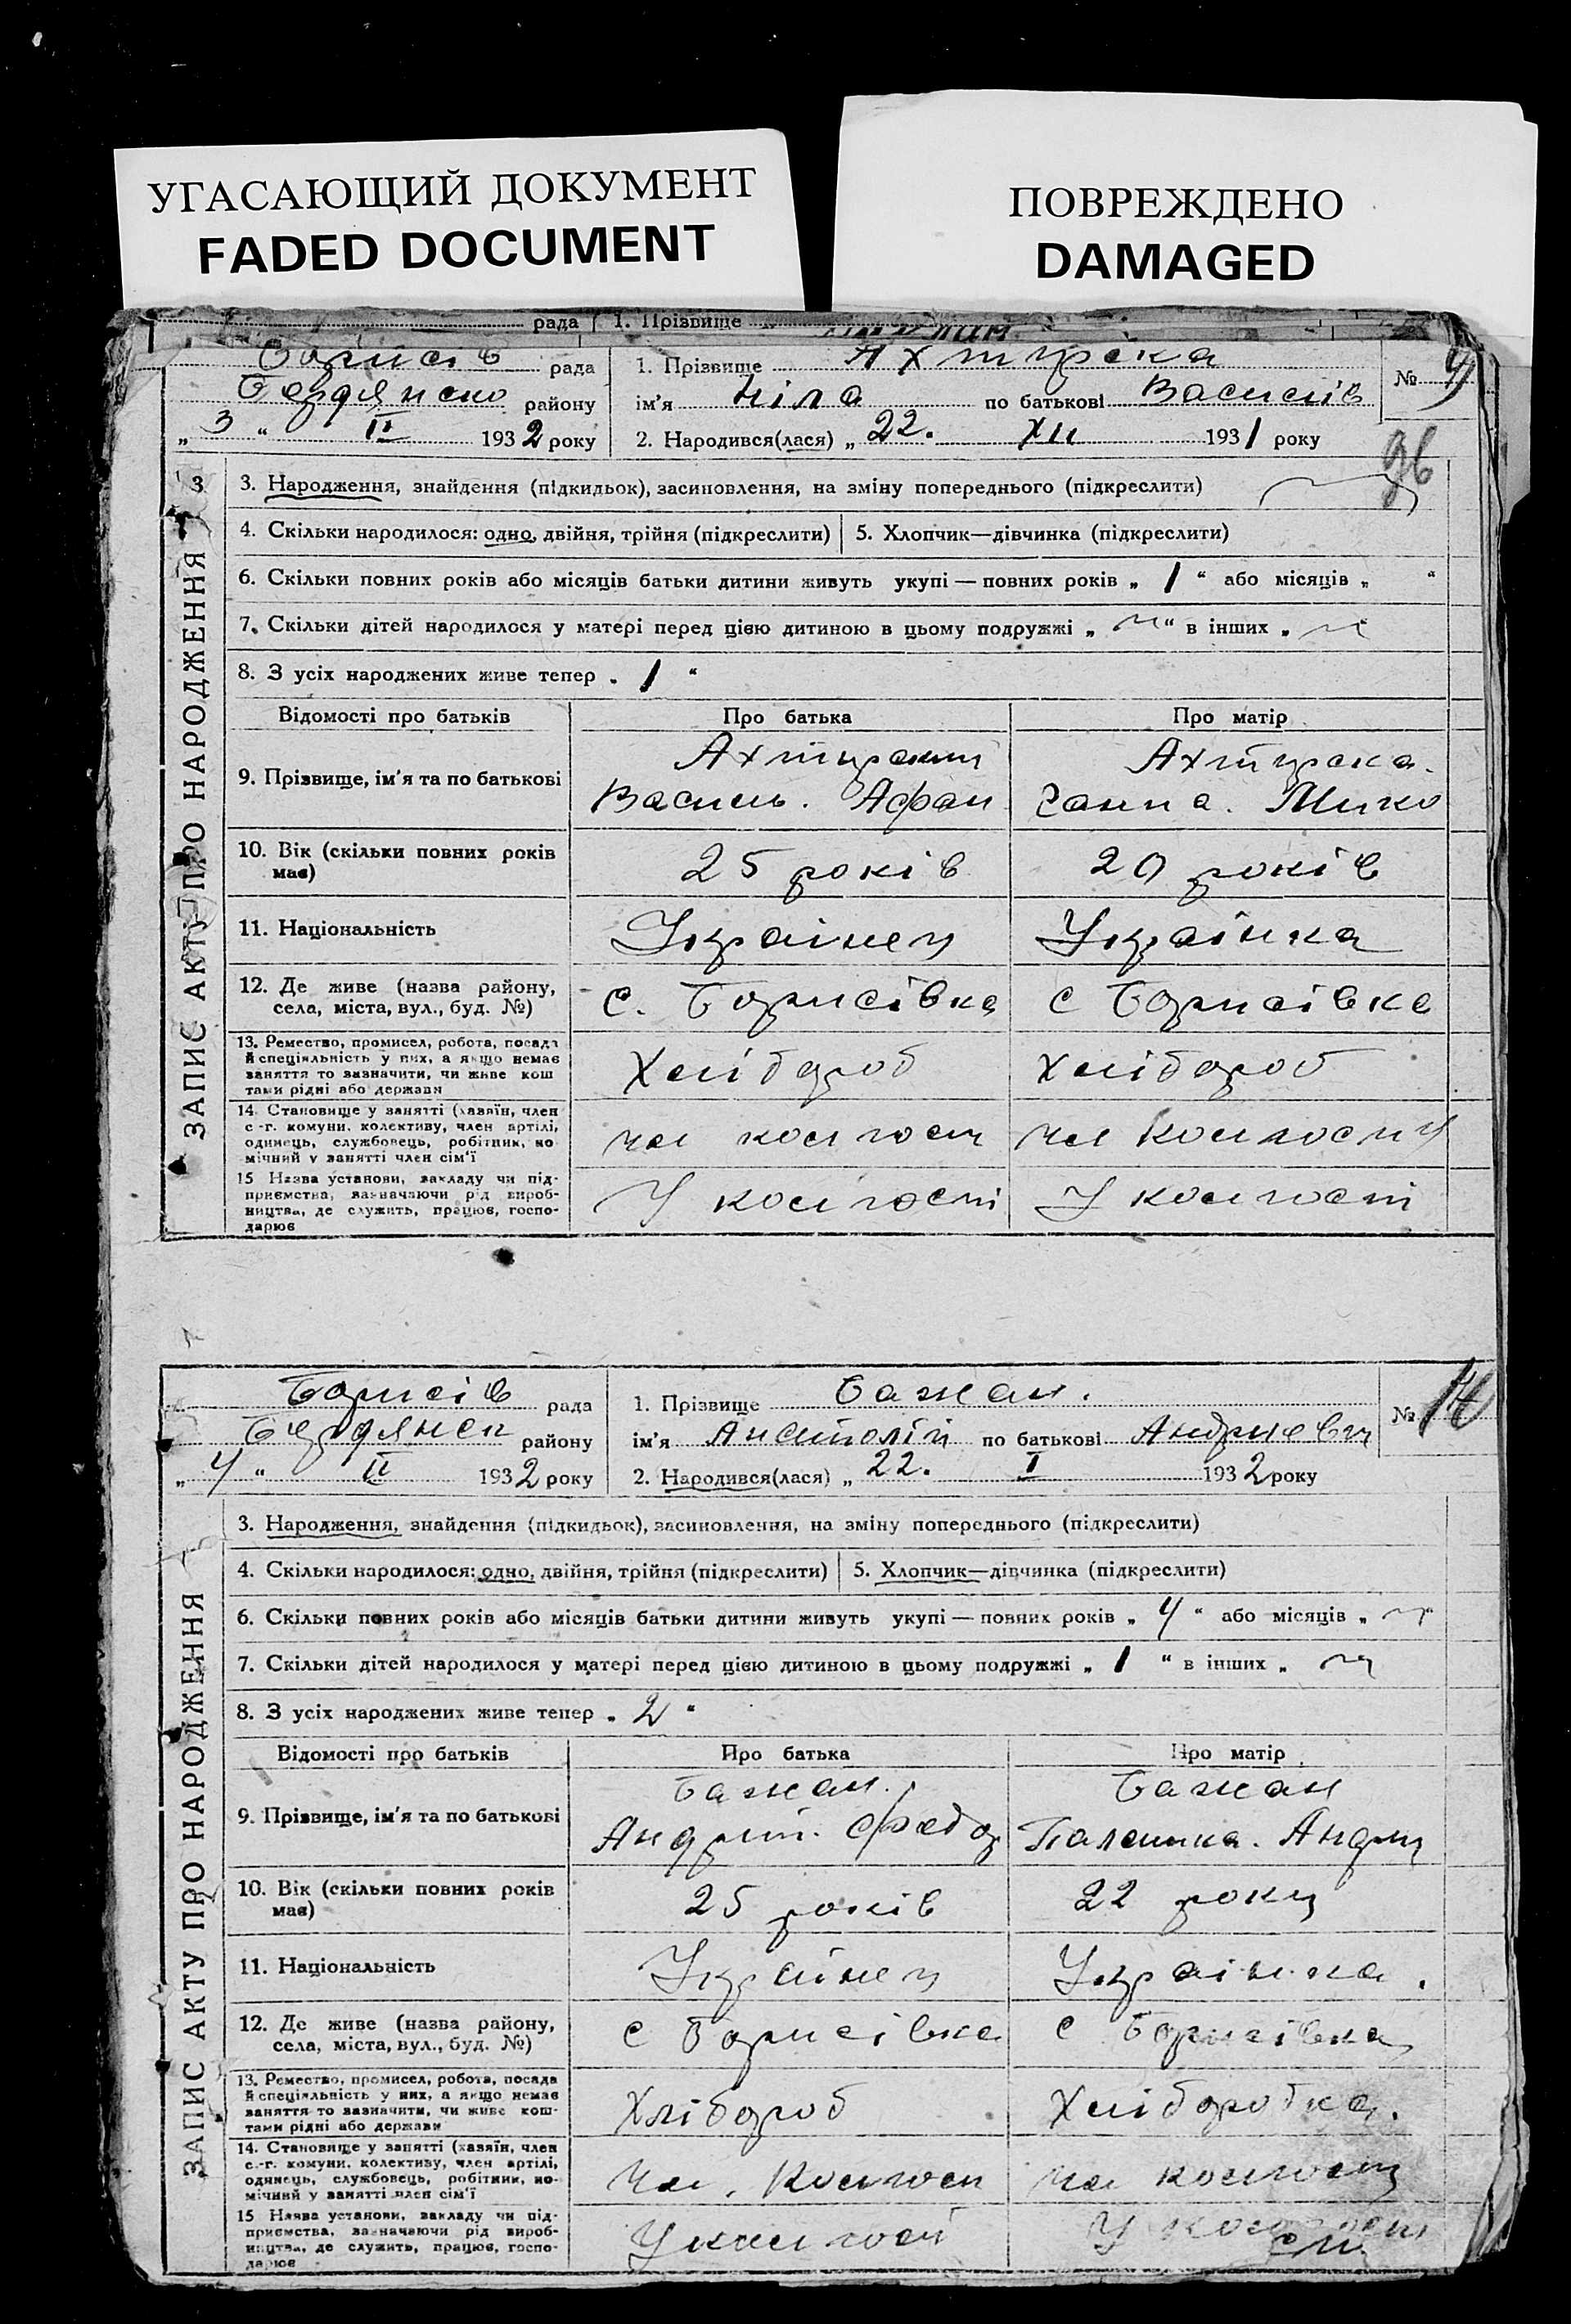 УГАСАЮЩИЙ ДОКУМЕНТ
FADED DOCUMENT
ПОВРЕЖДЕНО
DAMAGED
рада 1. Прізвище
Борисів рада 1. Прізвище Ахтирска №
Бердянско району ім'я Ніла по батькові Василів
„ 3 “ II 1932 року 2. Народився(лася) „ 22. XII 1931 року
96
3
3. Народження, знайдення (підкидьок), засиновлення, на зміну попереднього (підкреслити)
4. Скільки народилося: одно, двійня, трійня (підкреслити) 5. Хлопчик—дівчинка (підкреслити)
6. Скільки повних років або місяців батьки дитини живуть укупі — повних років „ 1 “ або місяців „ “
7. Скільки дітей народилося у матері перед цією дитиною в цьому подружжі „ “ в інших „ “
8. З усіх народжених живе тепер „ 1 “
Відомості про батьків Про батька Про матір
9. Прізвище, ім'я та по батькові
Ахтирский Василь. Афан
Ахтирска. Ганна. Мико
10. Вік (скільки повних років має) 25 років 20 років
11. Національність Украінец Украінка
12. Де живе (назва району, села, міста, вул., буд. №) с. Борисівка с Борисівка
13. Ремество, промисел, робота, посада
й спеціяльність у них, а якщо немає
заняття то зазначити, чи живе кош
тами рідні або держави
Хлібороб Хлібороб
14. Становище у занятті (хазяїн, член
с.-г. комуни, колективу, член артілі,
одинець, службовець, робітник, по
мічний у занятті член сім'ї
чл колгосп чл колгоспу
15 Назва установи, закладу чи під-
приємства, зазначаючи рід вироб-
ництва, де служить, працює, госпо-
дарює
У колгоспі У колгоспі
ЗАПИС АКТУ ПРО НАРОДЖЕННЯ
Борисів рада 1. Прізвище Бажан. №
Бердянск району ім'я Анатолій по батькові Андриевич
„ 4 “ II 1932 року 2. Народився(лася) „ 22. I 1932 року
3. Народження, знайдення (підкидьок), засиновлення, на зміну попереднього (підкреслити)
4. Скільки народилося: одно, двійня, трійня (підкреслити) 5. Хлопчик—дівчинка (підкреслити)
6. Скільки повних років або місяців батьки дитини живуть укупі — повних років „ 4 “ або місяців „ “
7. Скільки дітей народилося у матері перед цією дитиною в цьому подружжі „ 1 “ в інших „
8. З усіх народжених живе тепер „ 2 “
Відомості про батьків Про батька Про матір
9. Прізвище, ім'я та по батькові
Бажан. Андрій. Федор
Бажан Палашка. Андри
10. Вік (скільки повних років має) 25 років 22 роки
11. Національність Украінец Украінка.
12. Де живе (назва району, села, міста, вул., буд. №) с Борисівка с Борисівка
13. Ремество, промисел, робота, посада
й спеціяльність у них, а якщо немає
заняття то зазначити, чи живе кош-
тами рідні або держави
Хлібороб Хліборобка.
14. Становище у занятті (хазяїн, член
с.-г. комуни, колективу, член артілі,
одинець, службовець, робітник, по-
мічний у занятті член сім'ї
Чл. Колгосп чл колгоспу
15 Назва установи, закладу чи під-
приємства, зазначаючи рід вироб-
ництва, де служить, працює, госпо-
дарює
У колгосп У колгоспі
ЗАПИС АКТУ ПРО НАРОДЖЕННЯ